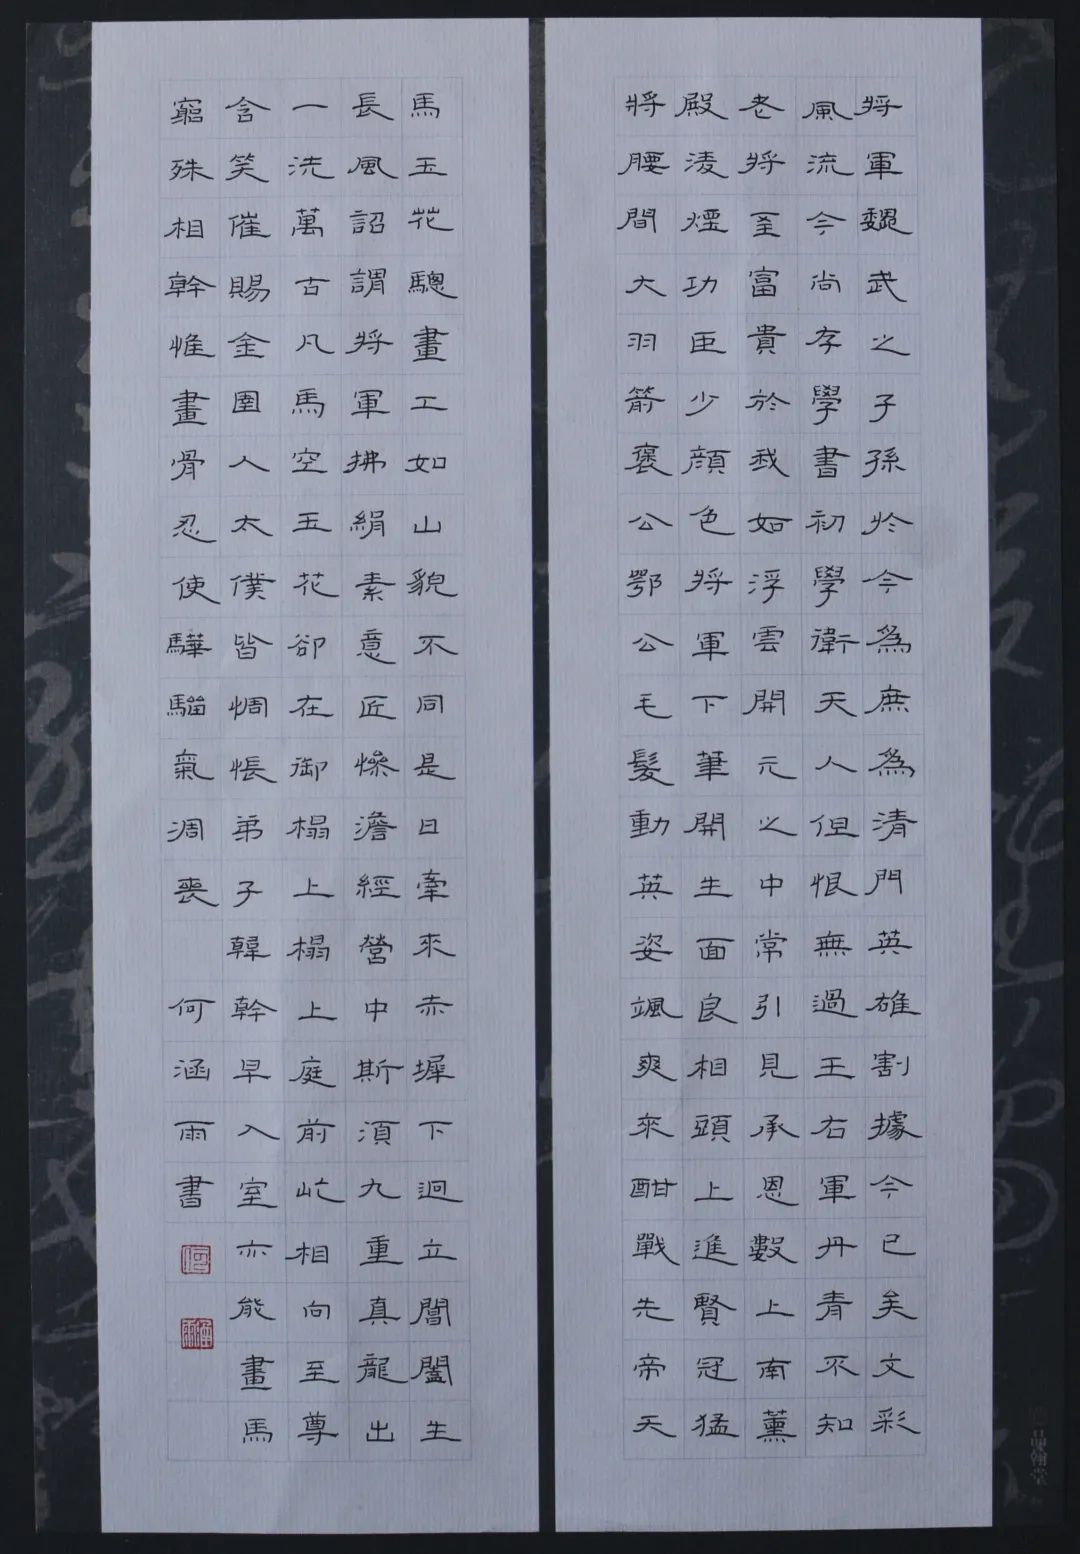 將軍魏武之子孫於今為庶為清門英雄割據今已矣文彩
風流今尚存學書初學衛天人但恨無過王右軍丹青不知
老將至富貴於我如浮雲開元之中常引見承恩數上南薰
殿淩煙功臣少顏色將軍下筆開生面良相頭上進賢冠猛
將腰間大羽箭褒公鄂公毛髮動英姿颯爽來酣戰先帝天
馬玉花驄畫工如山貌不同是日牽來赤墀下迥立閶闔生
長風詔謂將軍拂絹素意匠慘澹經營中斯須九重真龍出
一洗萬古凡馬空玉花卻在御榻上榻上庭前屹相向至尊
含笑催賜金圉人太僕皆惆悵弟子韓幹早入室亦能畫馬
窮殊相幹惟畫骨忍使驊騮氣凋喪 何涵雨書
品翰堂